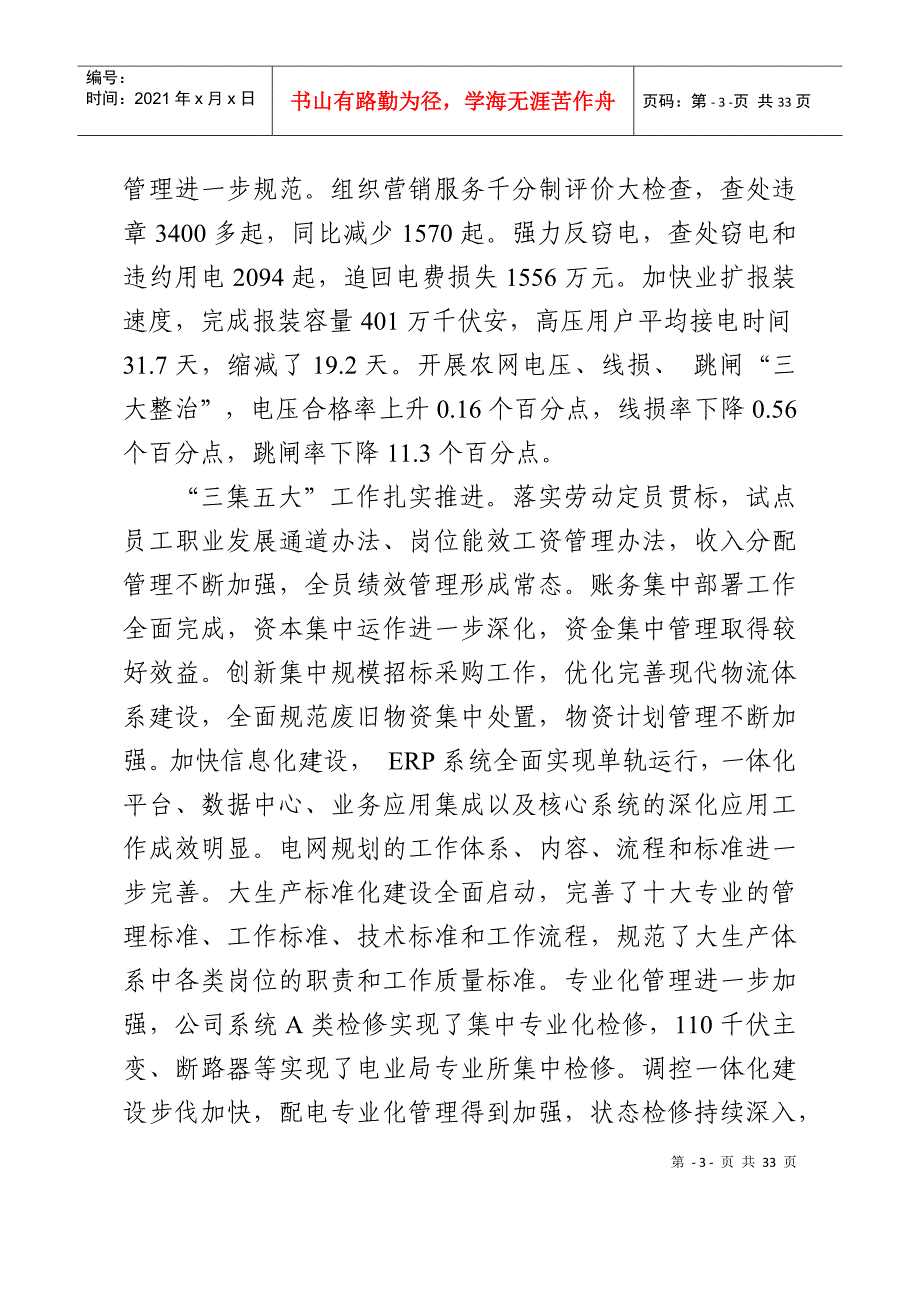 编号：
时间：2021年x月x日
书山有路勤为径，学海无涯苦作舟
页码：第 - 3 -页 共 33 页
管理进一步规范。组织营销服务千分制评价大检查，查处违
章 3400 多起，同比减少 1570 起。强力反窃电，查处窃电和
违约用电 2094 起，追回电费损失 1556 万元。加快业扩报装
速度，完成报装容量 401 万千伏安，高压用户平均接电时间
31.7 天，缩减了 19.2 天。开展农网电压、线损、 跳闸“三
大整治”，电压合格率上升 0.16 个百分点，线损率下降 0.56
个百分点，跳闸率下降 11.3 个百分点。
“三集五大”工作扎实推进。落实劳动定员贯标，试点
员工职业发展通道办法、岗位能效工资管理办法，收入分配
管理不断加强，全员绩效管理形成常态。账务集中部署工作
全面完成，资本集中运作进一步深化，资金集中管理取得较
好效益。创新集中规模招标采购工作，优化完善现代物流体
系建设，全面规范废旧物资集中处置，物资计划管理不断加
强。加快信息化建设， ERP 系统全面实现单轨运行，一体化
平台、数据中心、业务应用集成以及核心系统的深化应用工
作成效明显。电网规划的工作体系、内容、流程和标准进一
步完善。大生产标准化建设全面启动，完善了十大专业的管
理标准、工作标准、技术标准和工作流程，规范了大生产体
系中各类岗位的职责和工作质量标准。专业化管理进一步加
强，公司系统 A 类检修实现了集中专业化检修，110 千伏主
变、断路器等实现了电业局专业所集中检修。调控一体化建
设步伐加快，配电专业化管理得到加强，状态检修持续深入，
第 - 3 - 页 共 33 页